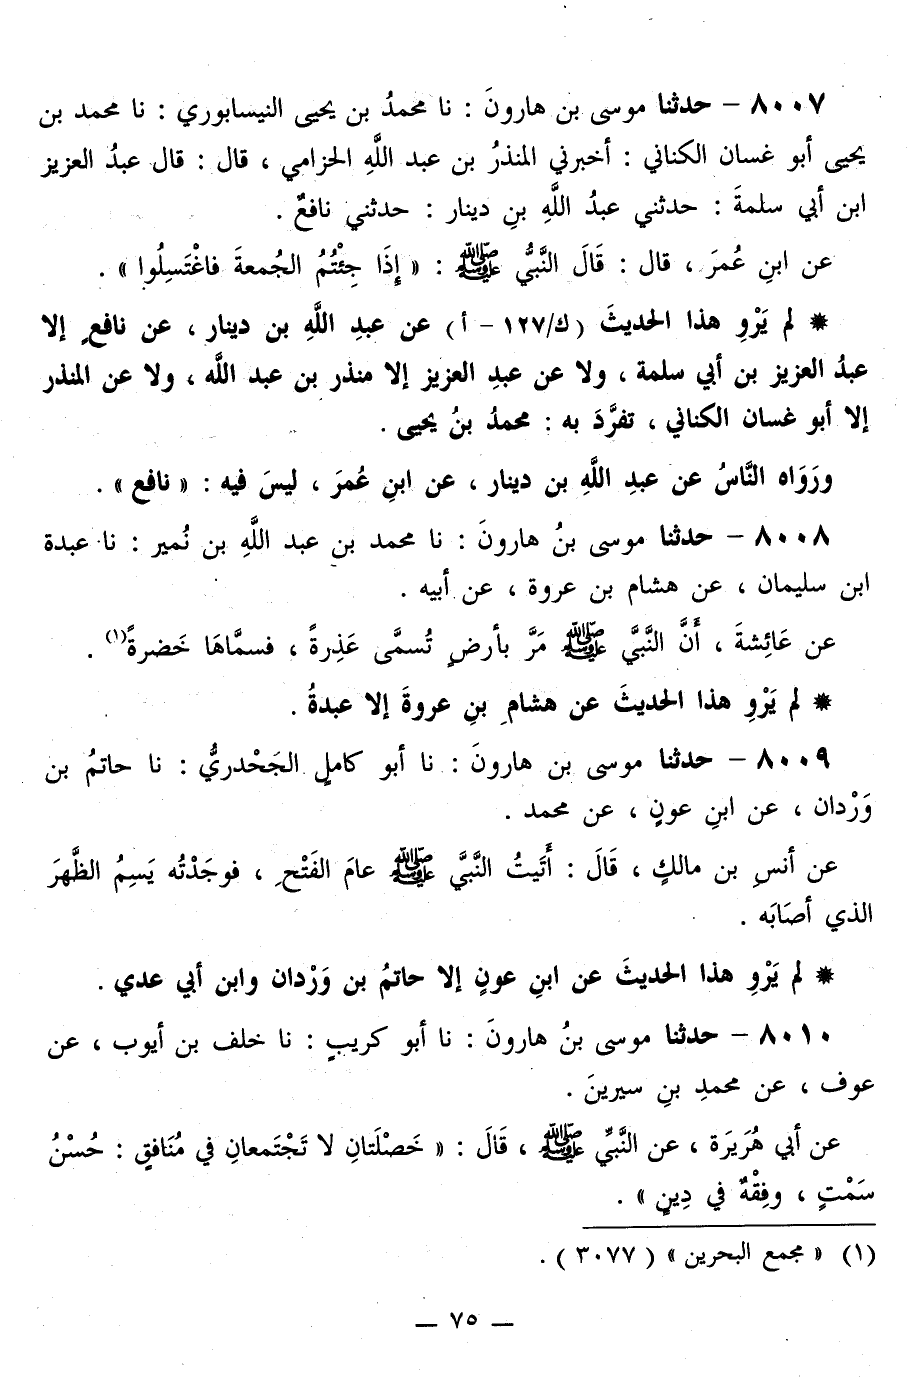 ٨٠٠٧ – حدثنا موسى بن هارونَ : نا محمدُ بن يحيى النيسابوري : نا محمد بن
يحيى أبو غسان الكناني : أخبرني المنذرُ بن عبد اللَّهِ الحزامي ، قال : قال عبدُ العزيز
ابن أبي سلمةَ : حدثني عبدُ اللَّهِ بنِ دينار : حدثني نافعٌ .
عن ابنِ عُمرَ ، قال : قَالَ النَّبيُّ ﷺ : « إِذَا جِئْتُمُ الجُمعةَ فاغْتَسِلُوا » .
* لم يَرْوِ هذا الحديثَ (ك/١٢٧ – أ) عن عبدِ اللَّهِ بن دينار ، عن نافعٍ إلا
عبدُ العزيز بن أبي سلمة ، ولا عن عبدِ العزيز إلا منذر بن عبد اللَّه ، ولا عن المنذر
إلا أبو غسان الكناني ، تفرَّدَ به : محمدُ بنُ يحيى .
ورَوَاه النَّاسُ عن عبدِ اللَّهِ بن دينار ، عن ابنِ عُمرَ ، ليسَ فيه : « نافع » .
٨٠٠٨ – حدثنا موسى بنُ هارونَ : نا محمد بن عبد اللَّهِ بن نُمير : نا عبدة
ابن سليمان ، عن هشام بن عروة ، عن أبيه .
عن عَائِشةَ ، أَنَّ النَّبيَّ ﷺ مَرَّ بأرضٍ تُسمَّى عَذِرةً ، فسمَّاهَا خَضرةً(١) .
* لم يَرْوِ هذا الحديثَ عن هشامِ بنِ عروةَ إلا عبدةُ .
٨٠٠٩ – حدثنا موسى بن هارونَ : نا أبو كاملٍ الجَحْدريُّ : نا حاتمُ بن
وَرْدان ، عن ابنِ عونٍ ، عن محمد .
عن أنسِ بن مالكٍ ، قَالَ : أَتَيتُ النَّبيَّ ﷺ عامَ الفَتْحِ ، فوجَدْتُه يَسِمُ الظَّهرَ
الذي أصَابَه .
* لم يَرْوِ هذا الحديثَ عن ابنِ عونٍ إلا حاتمُ بن وَرْدان وابن أبي عدي .
٨٠١٠ – حدثنا موسى بنُ هارونَ : نا أبو كريبٍ : نا خلف بن أيوب ، عن
عوف ، عن محمدِ بنِ سيرينَ .
عن أبي هُرَيرَة ، عن النَّبيِّ ﷺ ، قَالَ : « خَصلَتانِ لا تَجْتَمعانِ في مُنَافقٍ : حُسْنُ
سَمْتٍ ، وفِقْهٌ في دِينٍ » .
(١) « مجمع البحرين » ( ٣٠٧٧ ) .
— ٧٥ —